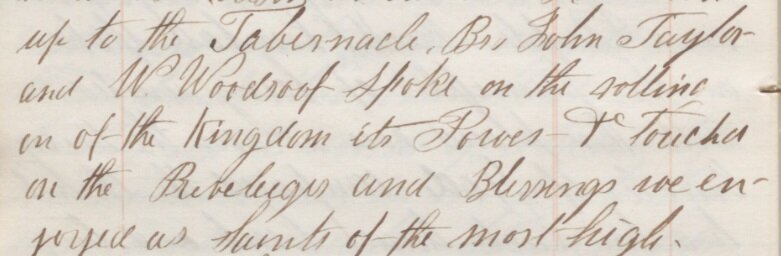 up to the Tabernacle. Br. John Taylor
and W. Woodroof Spoke on the rolling
on of the Kingdom its Power & Touched
on the Privelieges and Blessings we en-
joyed as Saints of the most high.